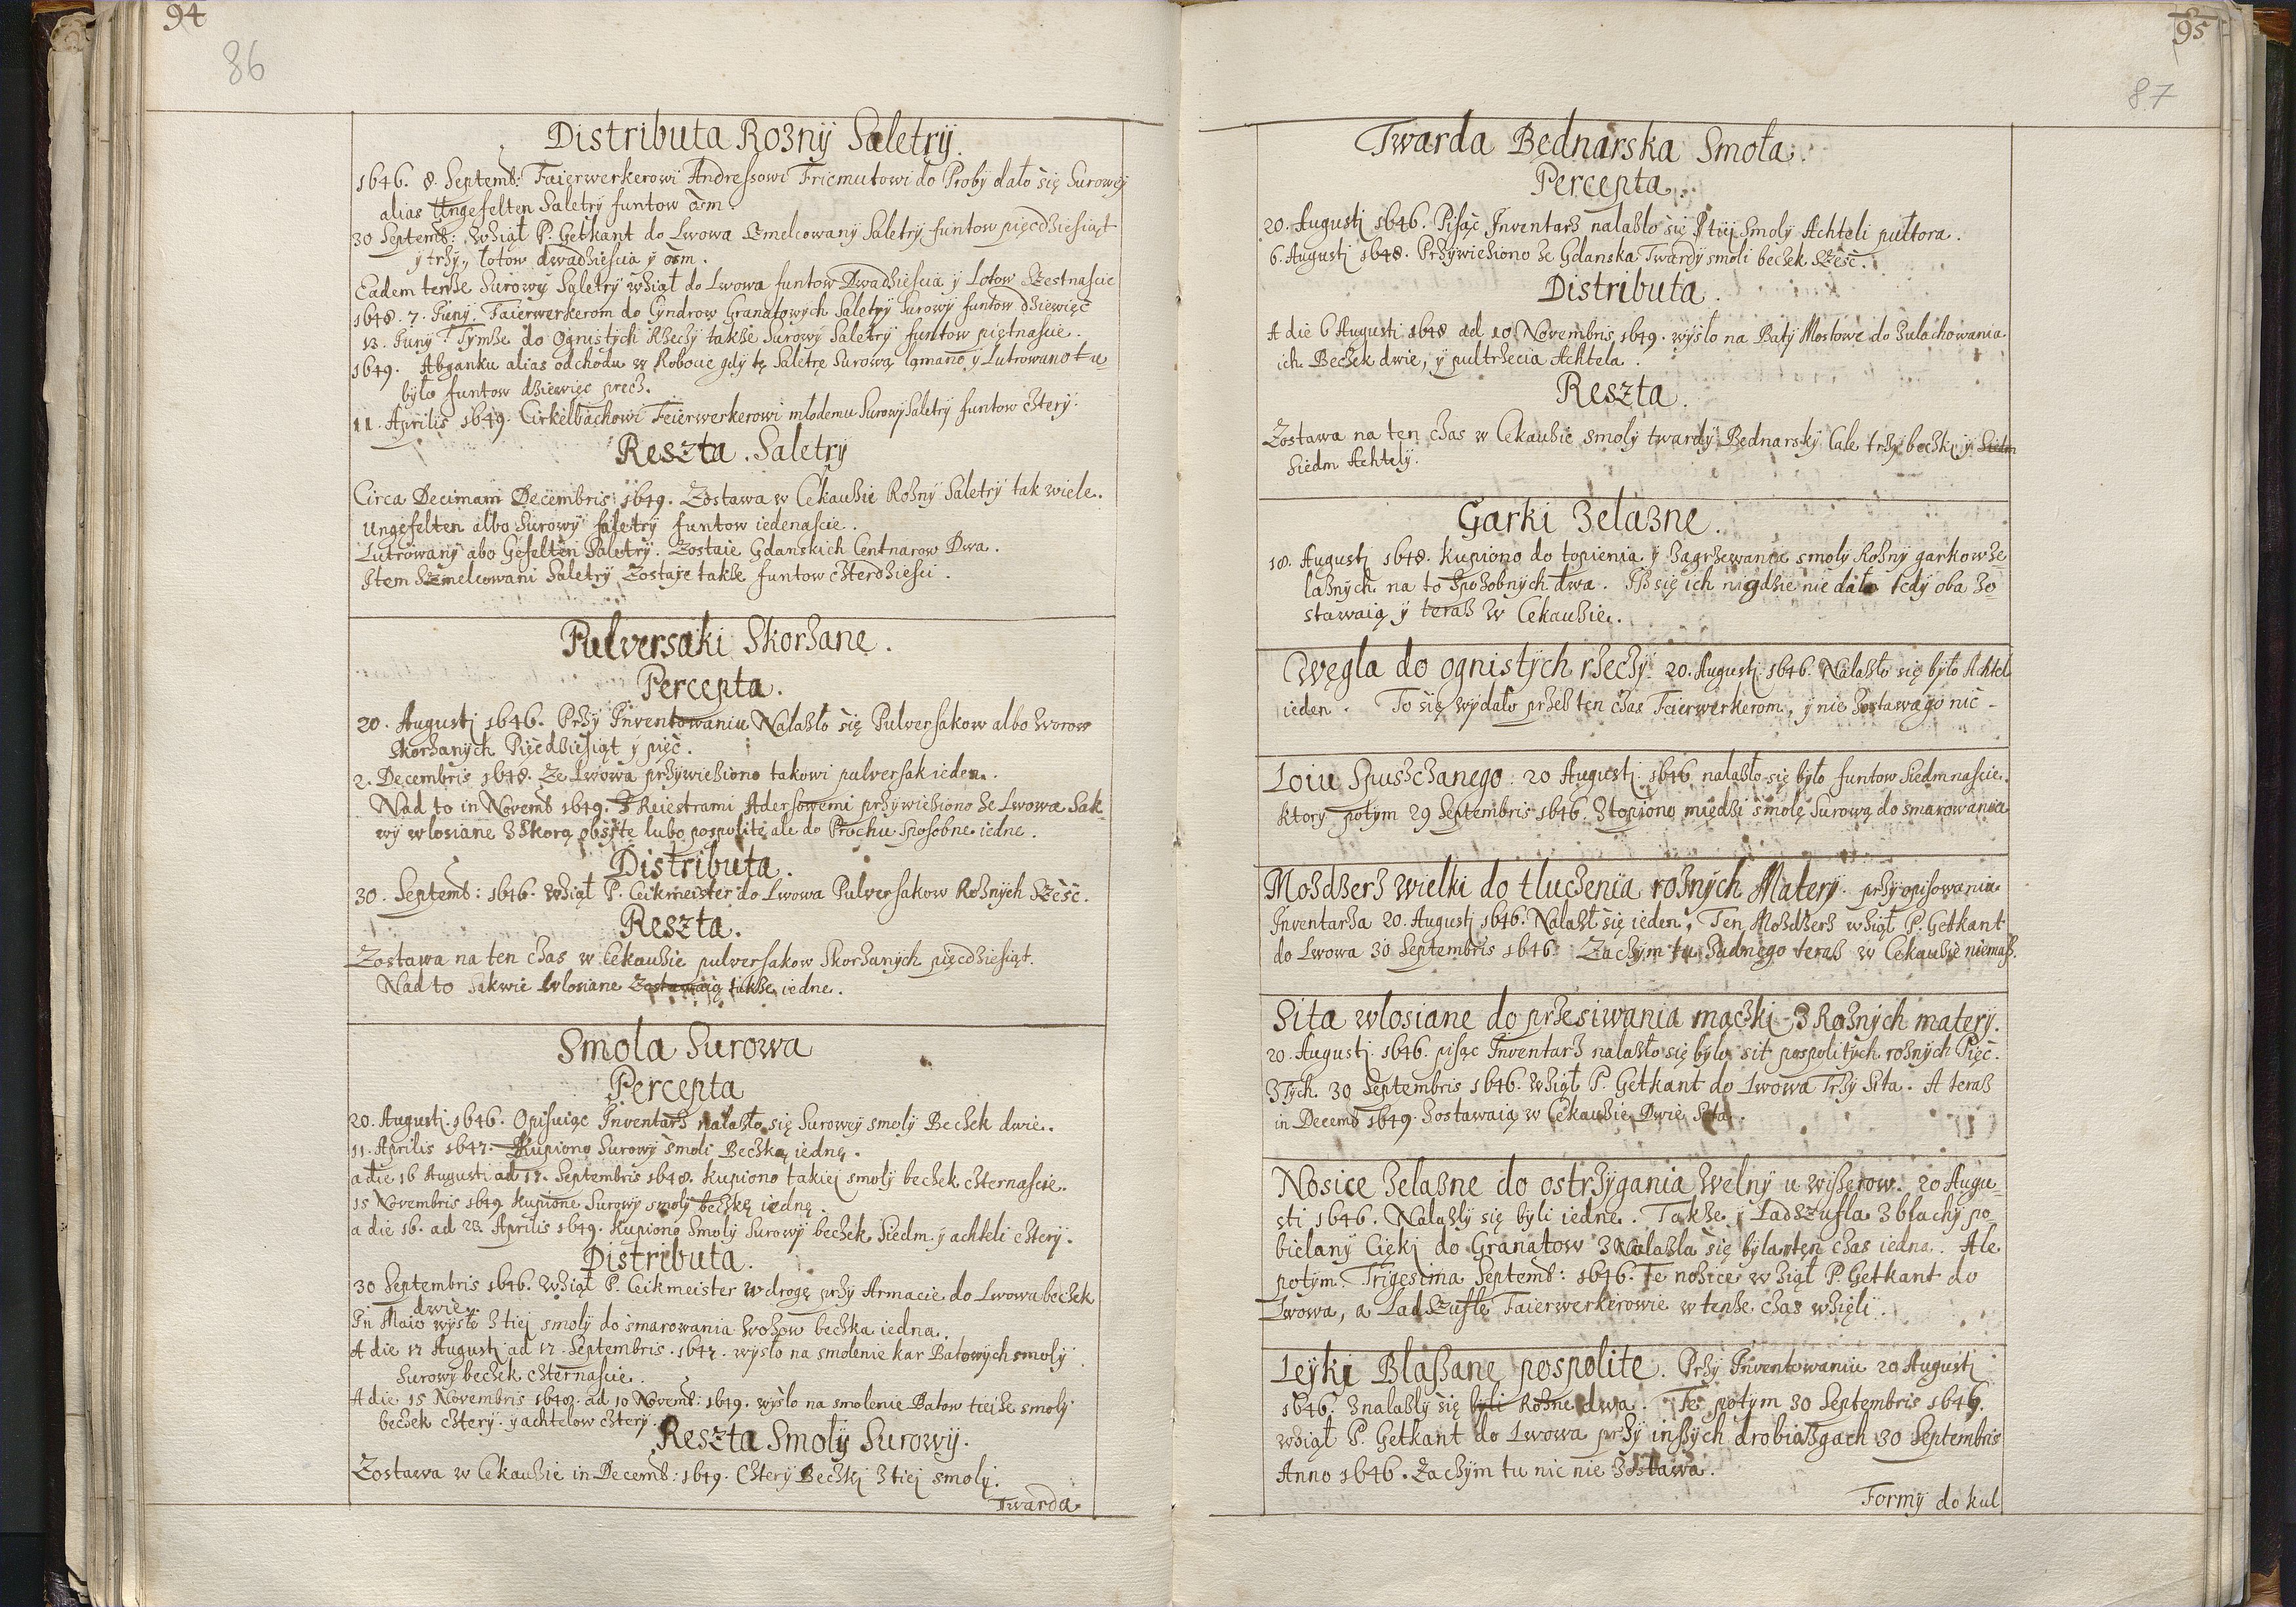 94
86
Distributa Rożnÿ Saletrÿ.
1646. 8. Septemb: Faierwerkerowi Andressowi Friemutowi do Probÿ dało się Surowey
alias Ungefelten Saletrÿ funtow osm.
30 Septemb: wziął P. Getkant do Lwowa Szmelcowanÿ Saletrÿ funtow pięcdziesiąt
y trzy, łotow dwadziescia ÿ osm.
Eadem tenże Surowÿ Saletrÿ wziął do Lwowa funtow Dwadziescia ÿ Lotow Szesnascie
1648. 7. Junÿ. Faierwerkerom do Cyndrow Granatowych Saletrÿ Surowÿ funtow dziewięc
13. Junÿ Tÿmże do Ognistÿch Rzeczÿ także Surowÿ Saletrÿ funtow piętnascie.
1649. Abganku alias odchodu w Robocie gdÿ tę Saletrę Surową łamano ÿ Lutrowano tu
było funtow dziewięc precz.
11. Aprilis 1649. Cirkelbachowi Feierwerkerowi młodemu Surowÿ Saletrÿ funtow czterÿ.
Reszta. Saletrÿ
Circa Decimam Decembris 1649. Zostawa w Cekauzie Rożnÿ Saletrÿ tak wiele.
Ungefelten albo Surowÿ saletrÿ funtow iedenascie.
Lutrowanÿ abo Gefelten Saletrÿ. Zostaie Gdanskich Centnarow Dwa.
Item Szmelcowani Saletrÿ Zostaje także funtow czterdziesci.
Pulversaki Skorzane.
Percepta.
20. Augusti 1646. Przÿ Inventowaniu Nalazło się Pulversakow albo Worow
Skorzanÿch Pięcdziesiąt ÿ pięc.
2. Decembris 1648. Ze Lwowa przÿwieziono takowi pulversak ieden.
Nad to in Novemb 1649. Z Reiestrami Adersowemi przÿwieziono ze Lwowa Sak-
wÿ wlosiane z Skorą obszÿte lubo pospolitę ale do Prochu Sposobne iedne.
Distributa.
30. Septemb: 1646. Wziął P. Ceikmeister do Lwowa Pulversakow Rożnÿch Szesc.
Reszta.
Zostawa na ten czas w Cekauzie pulversakow Skorzanÿch pięcdziesiąt.
Nad to Sakwie Wlosiane Zostawaią także iedne.
Smola Surowa
Percepta
20. Augusti. 1646. Opisuiąc Inventarz nalazło się Surowey smolÿ Beczek dwie.
11. Aprilis 1647. Kupiono Surowÿ Smoli Beczkę iednę.
a die 16 Augusti ad 17. Septembris 1648. kupiono takiej smolÿ beczek czternascie.
15 Novembris 1649 kupione Surowÿ smolÿ beczkę iednę.
a die 16. ad 23. Aprilis 1649. Kupiono Smolÿ Surowÿ beczek Siedm. ÿ achteli czterÿ.
Distributa.
30 Septembris 1646. Wziął P. Ceikmeister w drogę przÿ Armacie do Lwowa beczek
dwie.
In Maio wÿszło z tiej smolÿ do smarowania Wozow beczka iedna.
A die 17 Augusti ad 17. Septembris. 1647. wÿszło na smolenie kar Batowÿch smolÿ
Surowÿ beczek czternascie.
A die 15 Novembris 1648. ad 10 Novemb: 1649. wÿszlo na smolenie Batow tieize smolÿ
beczek czterÿ. ÿ achtelow czterÿ.
Reszta Smolÿ Surowÿ.
Zostawa w Cekauzie in Decemb: 1649. Czterÿ Beczkj z tiej smolÿ.
Twarda
95
87
Twarda Bednarska Smoła.
Percepta.
20. Augustj 1646. Pisąc Inventarz nalazło się tÿj Smolÿ Achteli pułtora.
6. Augustj 1648. Przÿwieziono ze Gdanska Twardÿ smoli beczek Szesc.
Distributa.
A die 6 Augusti 1648 ad 10 Novembris 1649. wÿszło na Batÿ Mostowe do Zulachowania
ich Beczek dwie, ÿ pultrzecia Achtela.
Reszta.
Zostawa na ten czas w Cekauzie smolÿ twardÿ Bednarskÿ Cale trzÿ beczkj ÿ Siedm
Siedm Achtelÿ.
Garki Żelazne.
18. Augustj 1648. kupiono do topienia ÿ Zagrzewania smolÿ Rożnÿ garkow że-
laznÿch na to Spozobnÿch dwa. Iż się ich nigdzie nie dało tedÿ oba zo-
stawaią ÿ teraz w Cekauzie.
Cwęgla do ognistÿch rzeczÿ. 20. Augustj 1646. Nalazło się bÿło Achtel
ieden. To się wÿdało przez ten czas Feierwerkerom, ÿ nie zostawa go nic.
Loiu Spuszczanego: 20 Augustj 1646 nalazło się bÿło funtow Siedmnascie.
ktorÿ potÿm 29 Septembris 1646. Ztopiono międzi smolę Surową do smarowania
Mozdzerz wielki do tluczenia rożnÿch Materÿ. przÿ opisowaniu
Inventarza 20. Augustj 1646. Nalazł się ieden, Ten Mozdzerz wziął P. Getkant
do Lwowa 30 Septembris 1646. Zaczÿm tu żadnego teraz w Cekauzie niemasz.
Sita wlosiane do przesiwania mączkj z Rożnÿch materÿ.
20. Augustj. 1646. pisąc Inventarz nalazło się bÿlo sit pospolitÿch rożnÿch Pięc.
z Tÿch. 30 Septembris 1646. Wziął P. Getkant do Lwowa Trzÿ Sita. A teraz
in Decemb 1649. Zostawaią w Cekauzie Dwie Sita.
Nosice Żelazne do ostrzÿgania Welnÿ u wiszerow. 20 Augu-
sti 1646. Nalazlÿ się bÿli iedne. Także ÿ Ladszufla z blachÿ po-
bielanÿ Cięzkj do Granatow Znalazla się bÿla ten czas iedna. Ale
potÿm Trigesima Septemb: 1646. Te nosice wziął P. Getkant do
Lwowa, a Ladszuflę Faierwerkerowie w tenże czas wzięli.
Leÿkj Blaszane pospolite. Przÿ Inventowaniu 20 Augustj
1646. Znalazlÿ się bÿli Rożne dwa. Te potÿm 30 Septembris 1646.
wziął P. Getkant do Lwowa przÿ inszÿch drobiazgach 30 Septembris
Anno 1646. Zaczÿm tu nic nie Zostawa.
Formÿ do kul